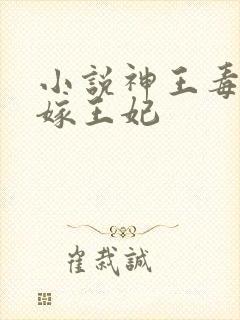 小説神王毒
嫁王妃
崔栽誠